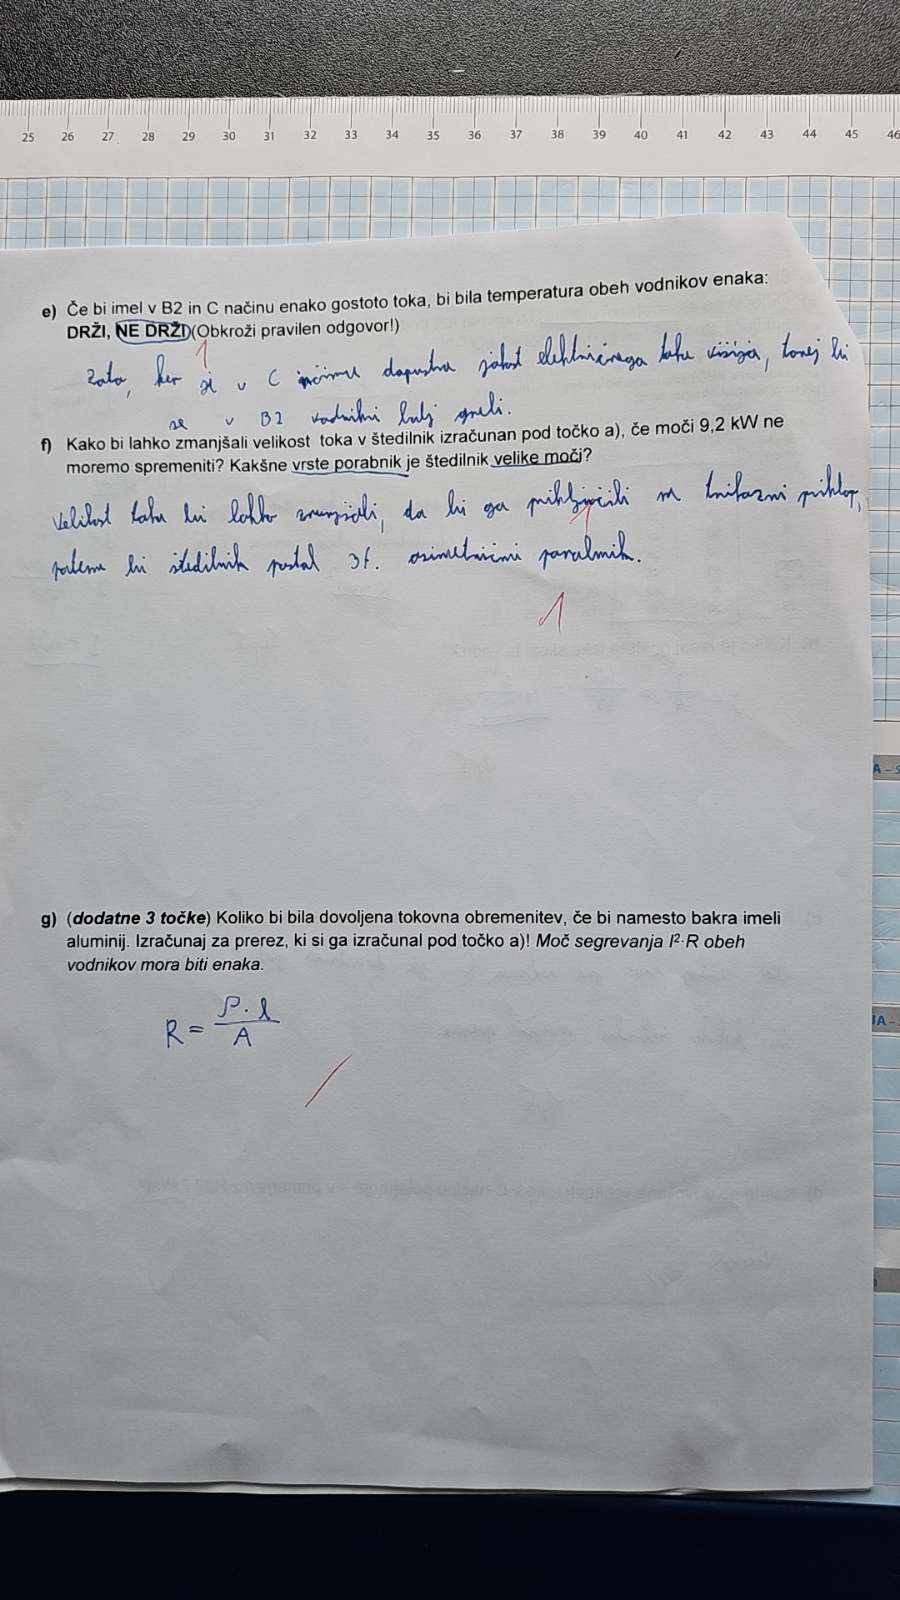 25 26 27 28 29 30 31 32 33 34 35 36 37 38 39 40 41 42 43 44 45 46
e) Če bi imel v B2 in C načinu enako gostoto toka, bi bila temperatura obeh vodnikov enaka:
DRŽI, NE DRŽI (Obkroži pravilen odgovor!)
1
zato, ker je v C načinu dopustna jakost električnega toka višja, torej bi
se v B2 vodniki bolj greli.
f) Kako bi lahko zmanjšali velikost toka v štedilnik izračunan pod točko a), če moči 9,2 kW ne
moremo spremeniti? Kakšne vrste porabnik je štedilnik velike moči?
Velikost toka bi lahko zmanjšali, da bi ga priključili na trifazni priklop,
potem bi štedilnik postal 3f. asimetrični porabnik.
1
1
g) (dodatne 3 točke) Koliko bi bila dovoljena tokovna obremenitev, če bi namesto bakra imeli
aluminij. Izračunaj za prerez, ki si ga izračunal pod točko a)! Moč segrevanja I²·R obeh
vodnikov mora biti enaka.
R = ρ · l / A